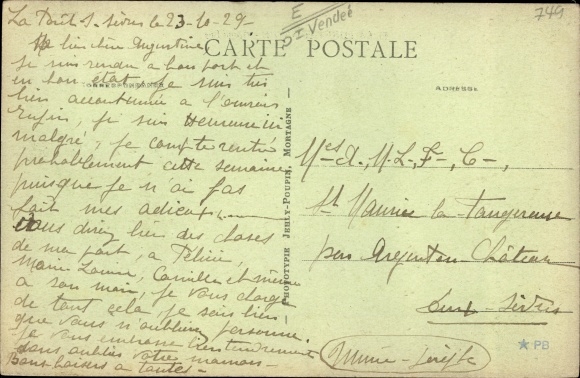 La Bruf. s. Sèvre le 23-10-29-
Ma bien chère Augustine
Je suis rendu a bon port et
en bon état, Je suis très
bien accoutumée a l'ouvrois
Enfin, je suis Heureuse ici
malgré, je compte rentré
probablement cette semaine
puisque je n'ai pas
fait mes adieux.
Vous direz bien des choses
de ma part, a Félicie,
Marie Louise, Camille et même
a son mari, je vous charge
de tout cela, je sais bien
que vous n'oublierez personne.
Je vous embrasse bien tendrement
sans oublier votre maman-
Bons baisers a toutes-
E
D.I. Vendée
749
CARTE POSTALE
CORRESPONDANCE
ADRESSE
PHOTOTYPIE JEHLY-POUPIN, MORTAGNE
Mes A., M-L, F-, C-,
St Maurice la Fougereuse
par Argenton-Château
Deux-Sèvres
PB